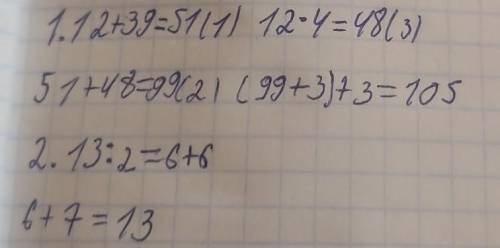 1.12+39=51(1) 12·4=48(3)
51+48=99(2) (99+3)+3=105
2.13:2=6+6
6+7=13